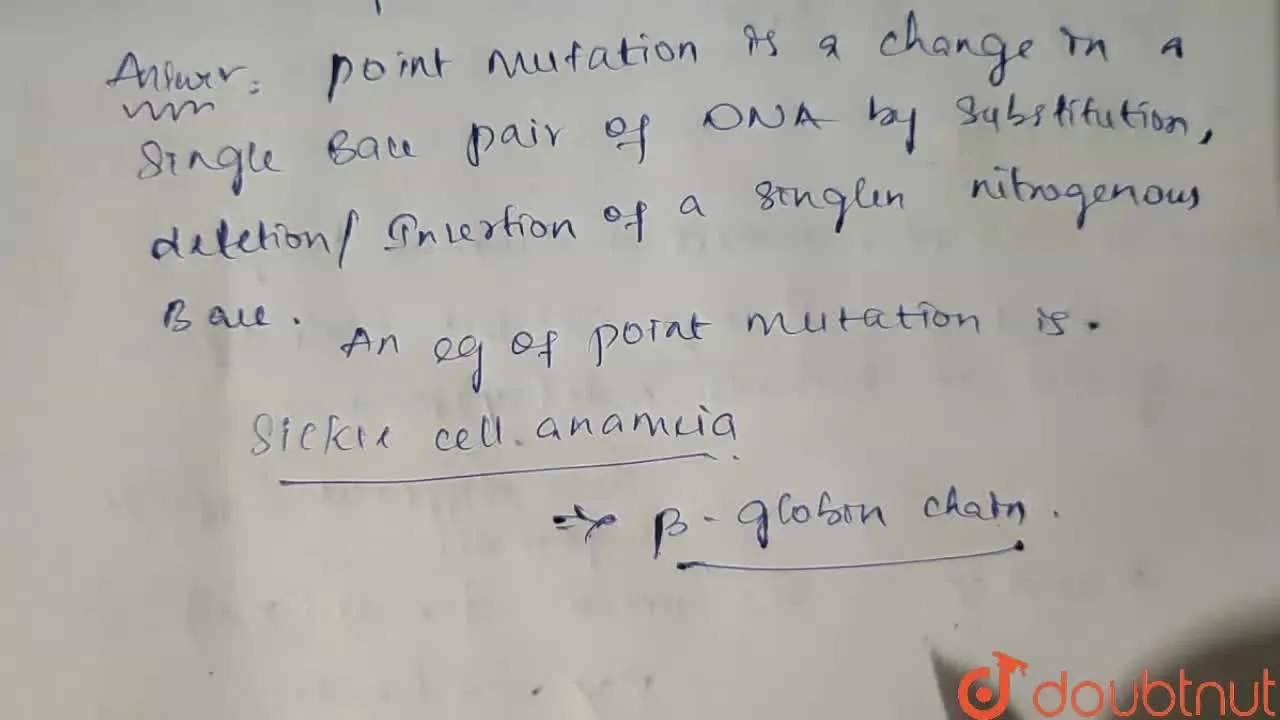 Answer: point mutation is a change in a
Single Base pair of DNA by substitution,
deletion/ Insertion of a singlen nitrogenous
Base. An eg of point mutation is.
Sickle cell. anameia
⇒ β - globin chain.
doubtnut